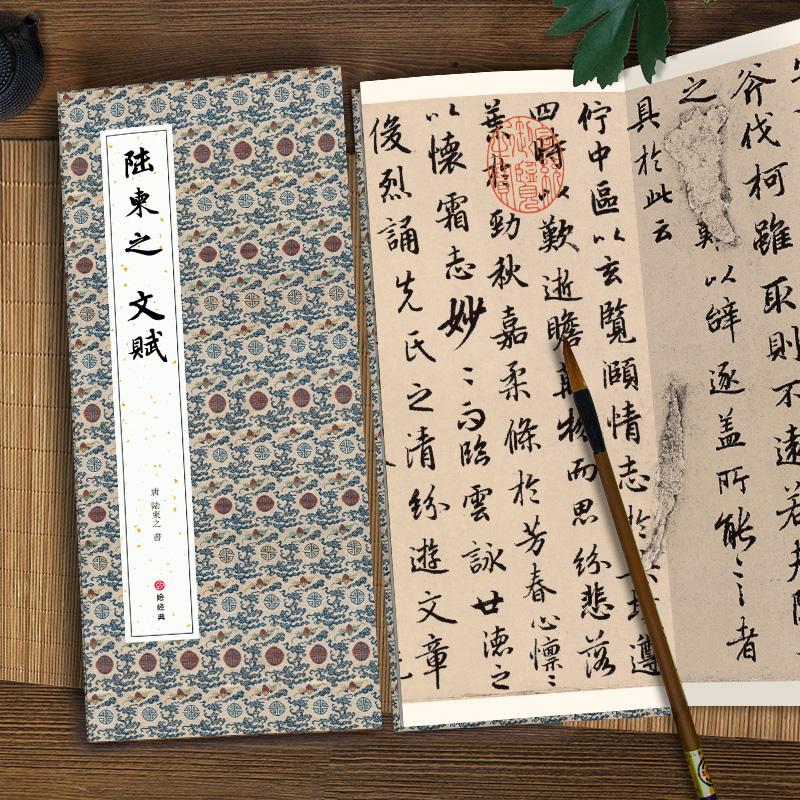 陆柬之 文赋
唐 陆柬之 書
绘经典
斧伐柯雖取則不遠若夫隨
之 以辞逐盖所能〻言〻者
具於此云
佇中區以玄覽頤情志於典墳遵
四時以歎逝瞻萬物而思紛悲落
葉於勁秋嘉柔條於芳春心懍〻
以懷霜志妙〻而臨雲詠世德之
俊烈誦先民之清紛遊文章